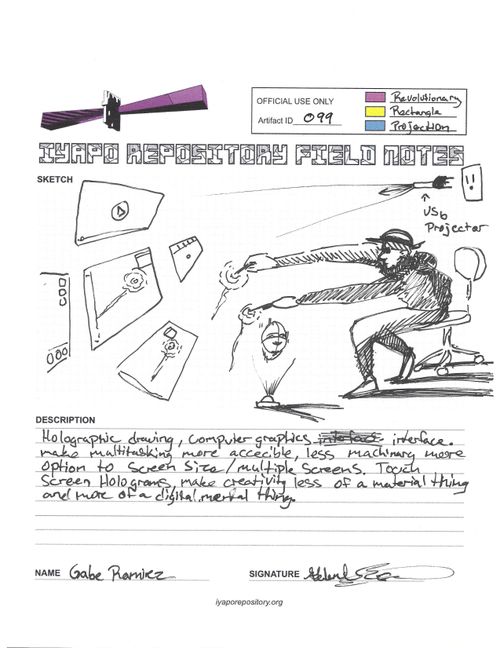 OFFICIAL USE ONLY
Artifact ID 099
Revolutionary
Rectangle
Projection
IYAPO REPOSITORY FIELD NOTES
SKETCH
USb
Projector
DESCRIPTION
Holographic drawing, Computer graphics interface.
make multitasking more accecible, less machinary more
option to Screen Size/multiple Screens. Touch
Screen Holograms, make creativity less of a material thing
and more of a digital, mental thing.
NAME Gabe Ramirez
SIGNATURE
iyaporepository.org